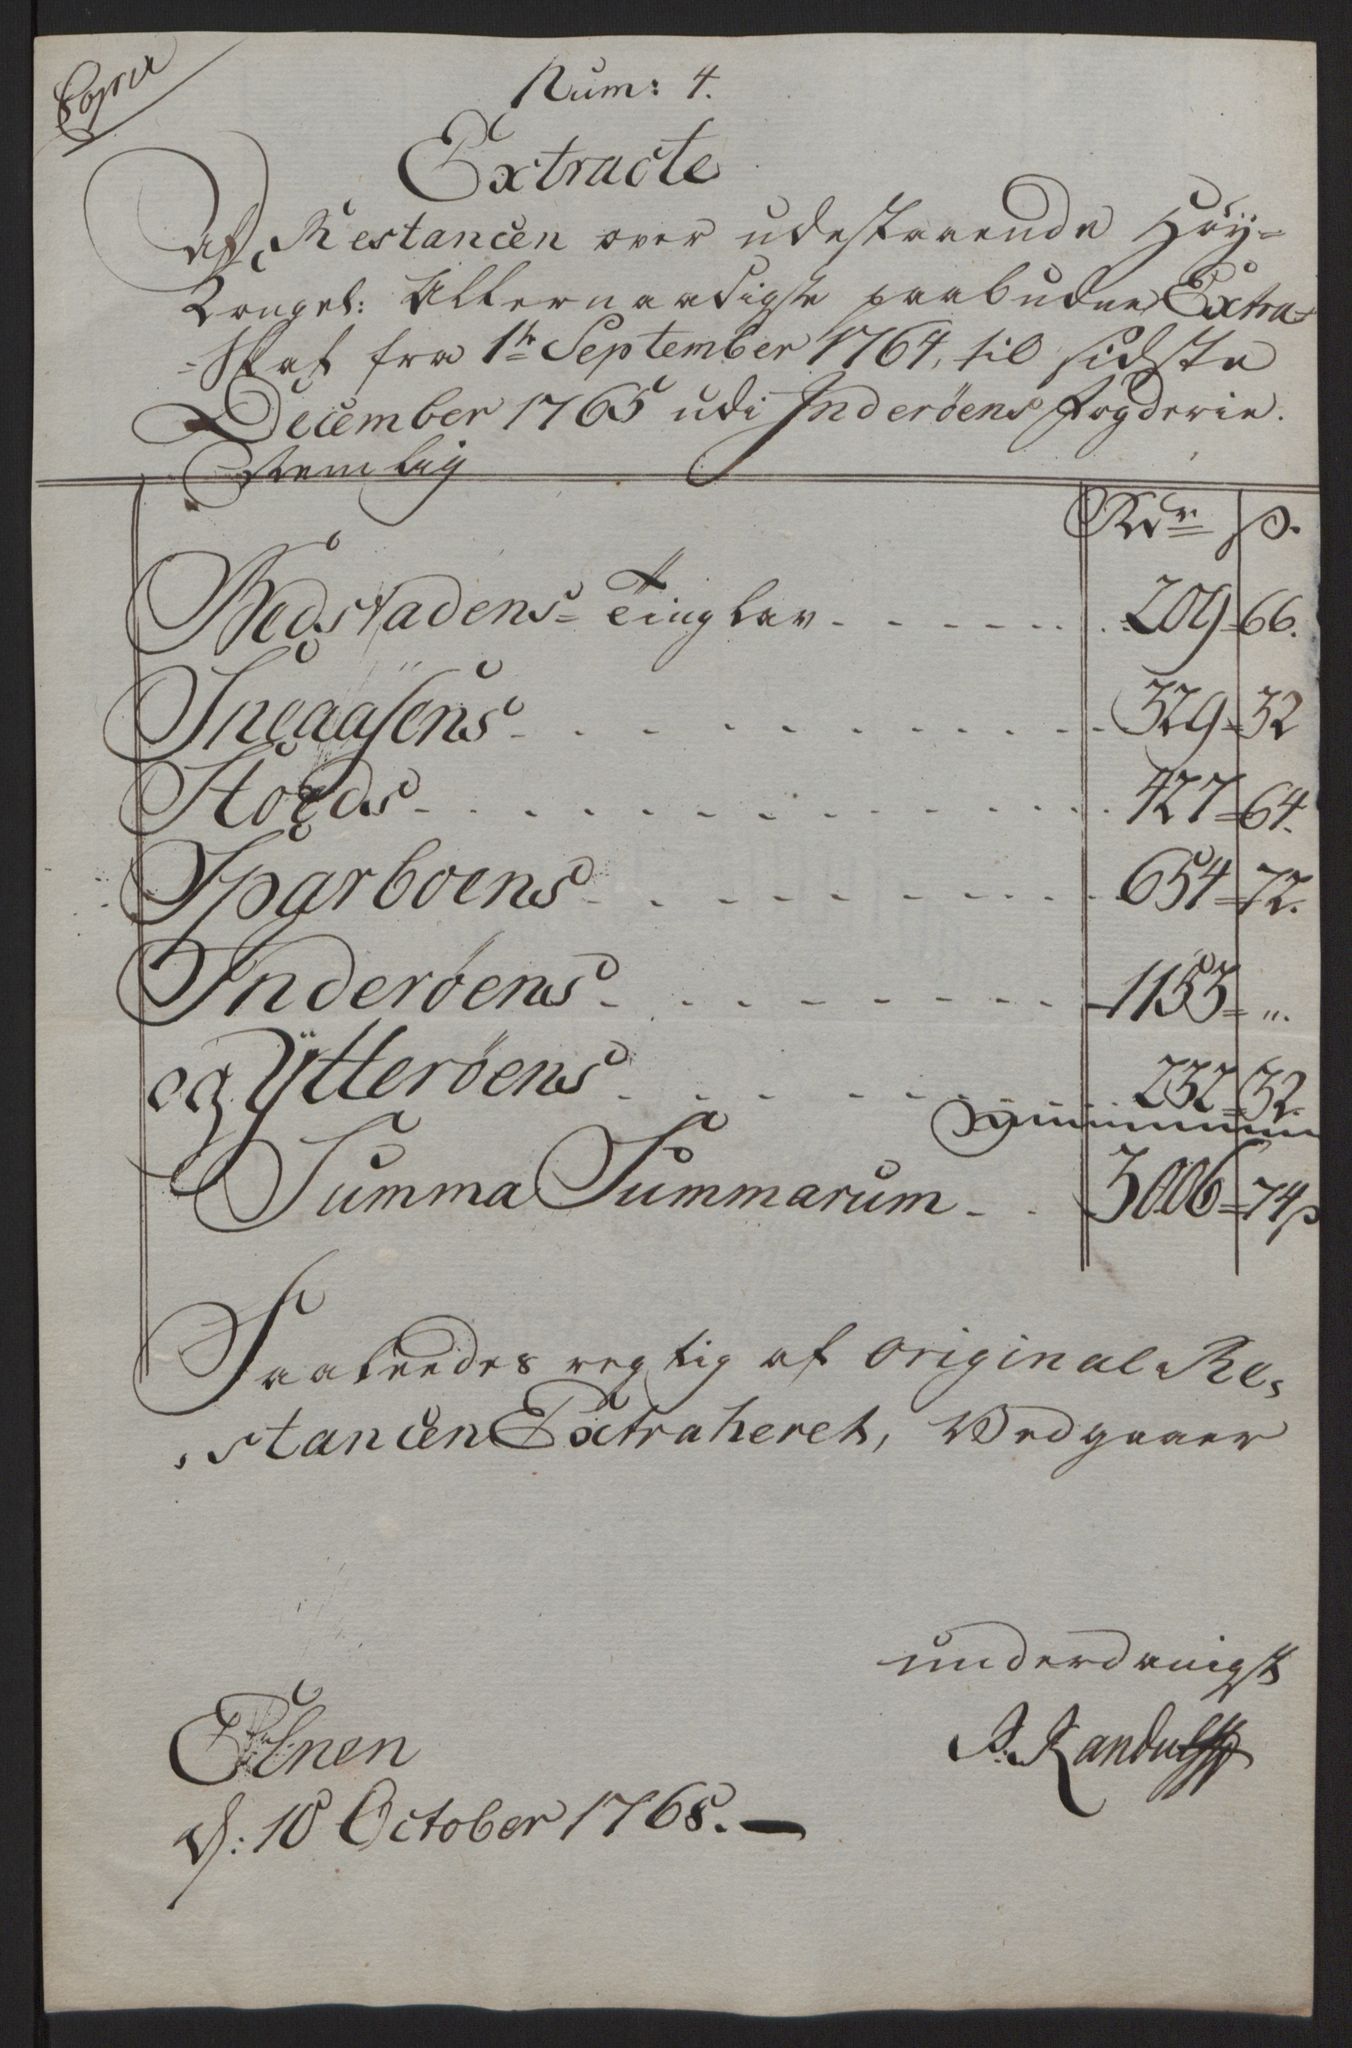 Copia
Num: 4.
Extracte
Af Restancen over udestaaende Höy-
Kongel: Allernaadigste paabudne Extra-
-Skat fra 1te September 1764, til sidste
December 1765 udi Inderöens Fogderie.
Nemlig
Rdr ß.
Bedstadens Tinglav 209 66.
Sneaasens 329 32
Stods 427 64.
Sparboens 654 72.
Inderöens 1153 „.
og Ytteröens 232 32.
Summa Summarum 3006 74ß
Saaleedes regtig af original Re-
stancen Extraheret, Vedgaaer
underdanigst
Elnen
d: 10 October 1768.
S. Randulff